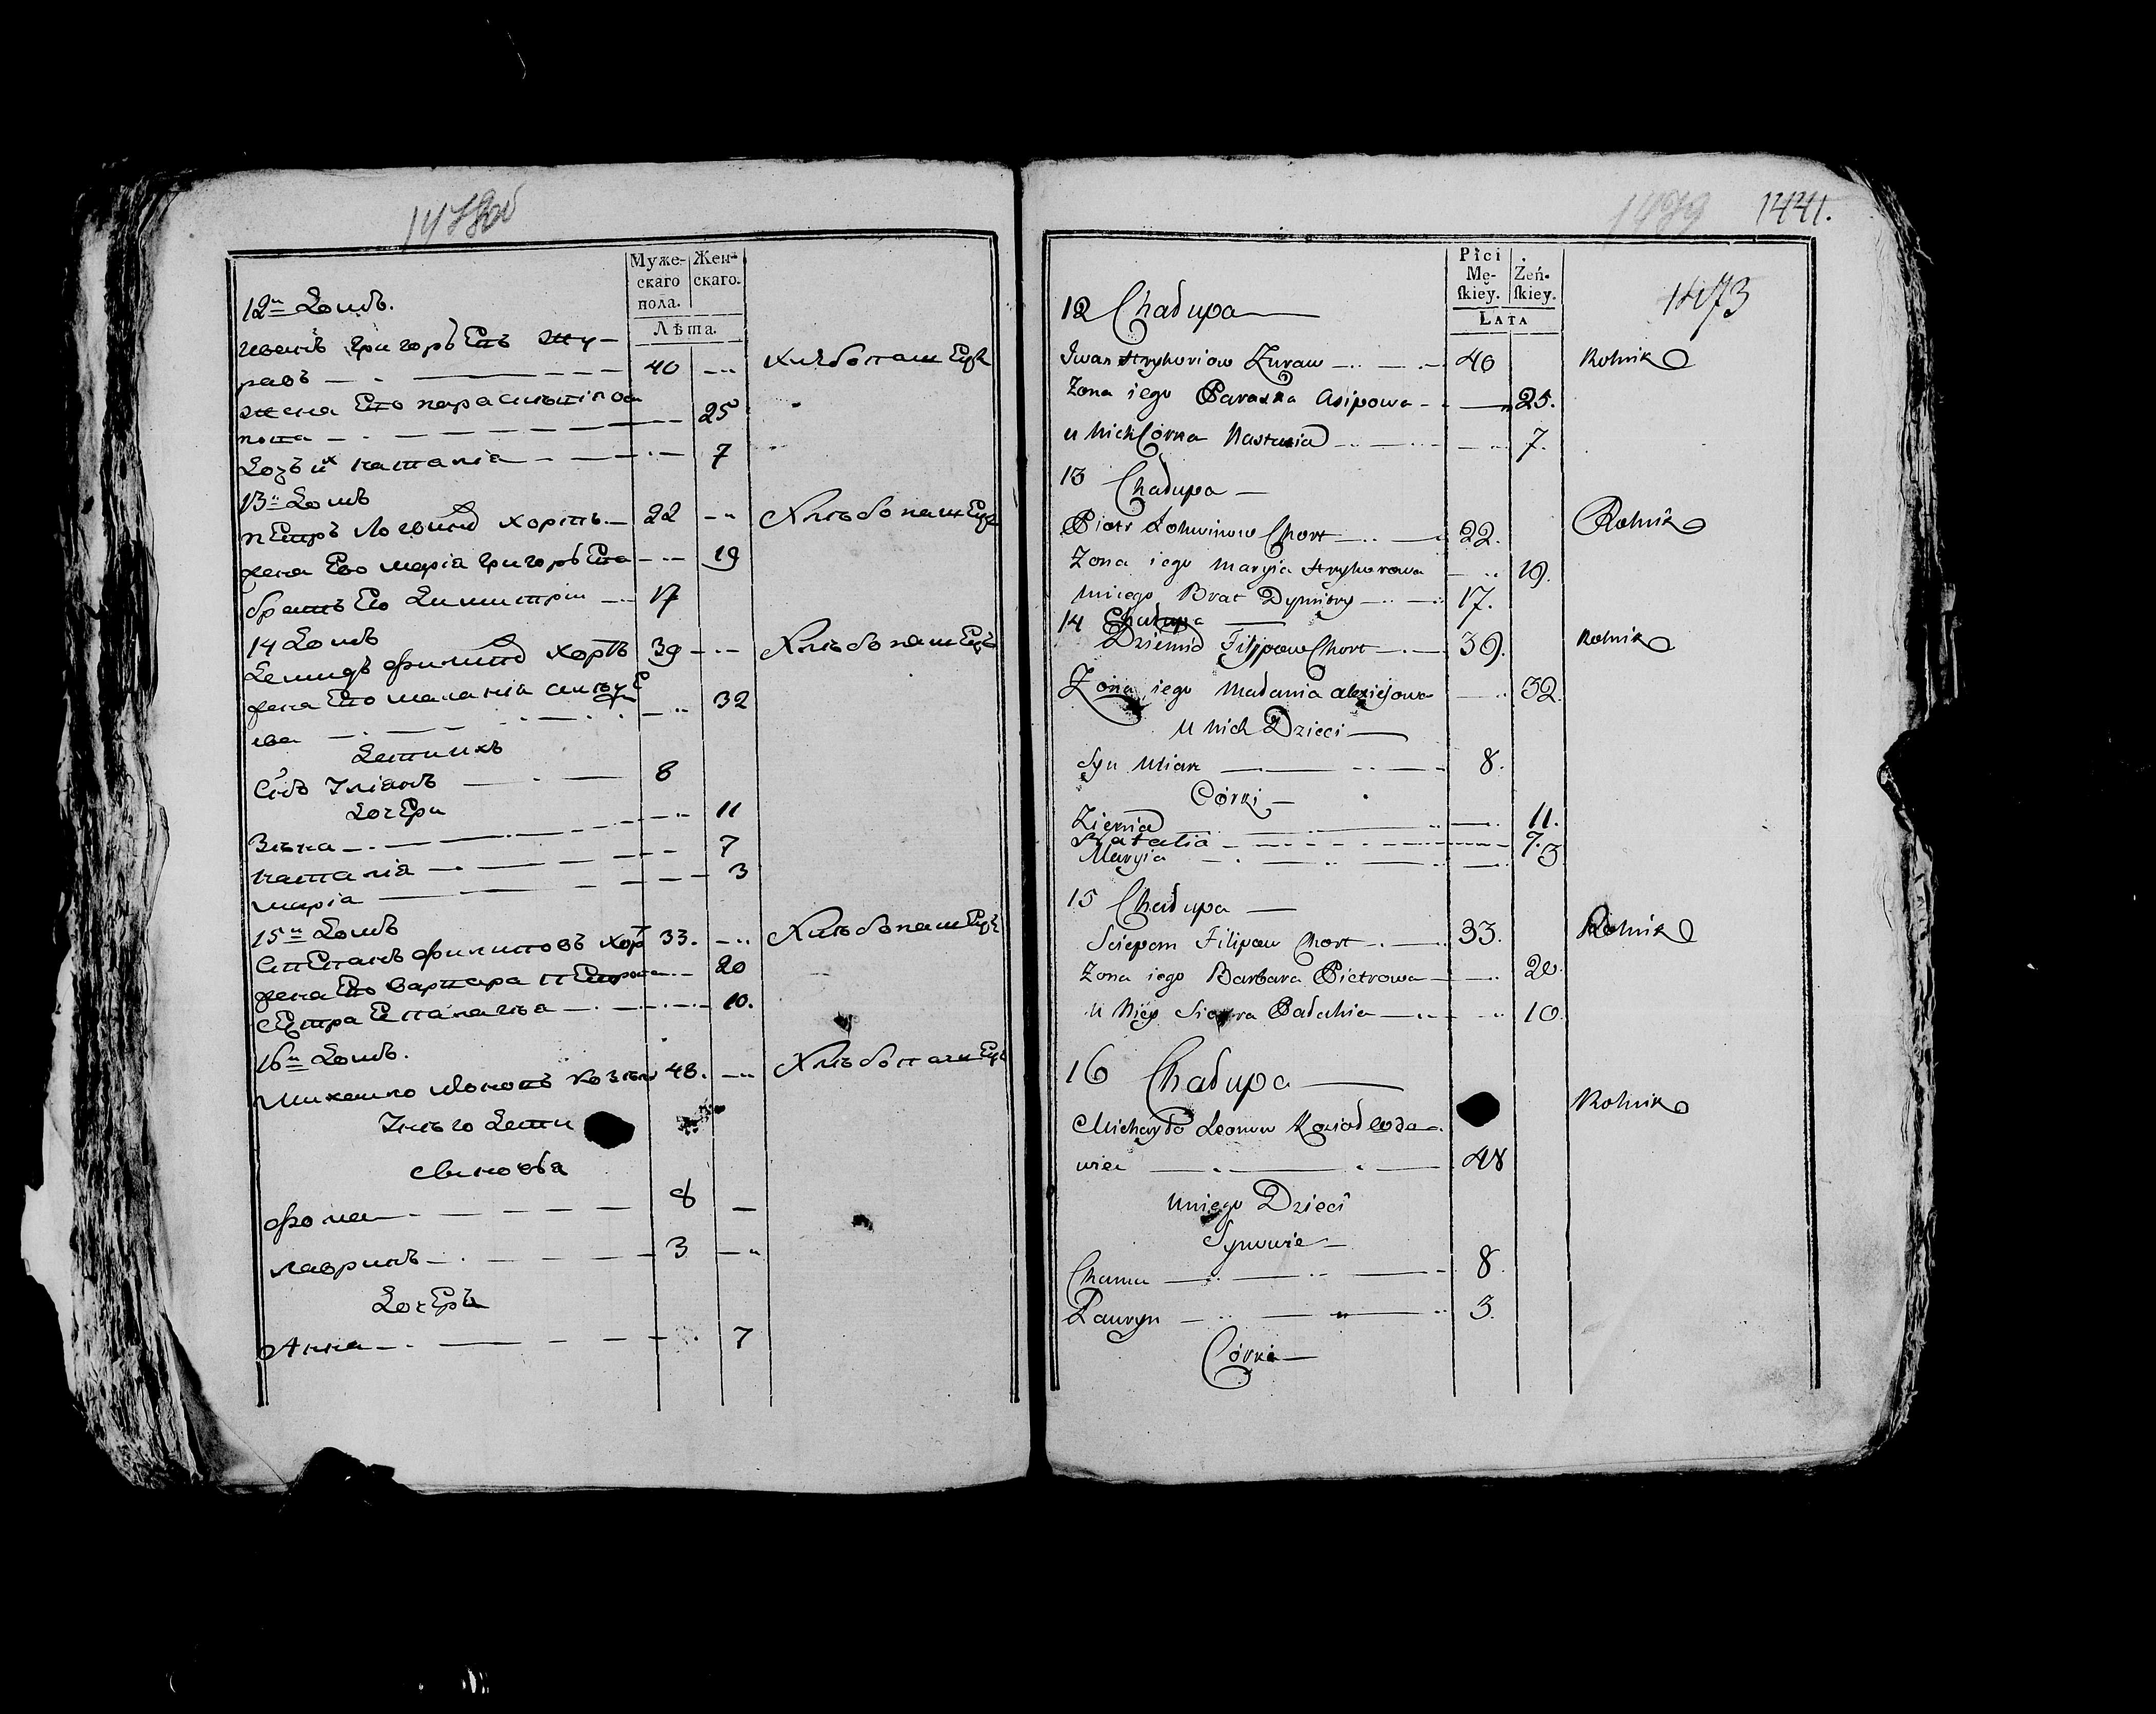 Муже-
скаго
пола.
Жен-
скаго.
Лѣта.
12й Домъ.
иванъ григорьевъ жу-
равъ 40 хлѣбопашецъ
жена Его параскев
25
7
13й Домъ
пЕтръ хортъ 22 Хлѣбопашецъ
жена Его маріа григорьЕва 19
братъ Его Димитрiи 17
14 Домъ
Демидъ хортъ 39 Хлѣбопашецъ
жена Его маланiа
32
Снъ Ульанъ 8
ДочЕри
Зѣна 11
наталiа 7
марiа 3
15й Домъ
СтЕпанъ филиповъ хорт 33. Хлѣбопашецъ
жена Его варвара пЕтрова 20
сЕстра 10.
16й Домъ.
михаило 48. Хлѣбопашецъ
Унѣго дети
Синовья
фома 8
лавринъ 3
ДочЕръ
Анна 7
1441.
1473
Płci
Mę-
skiey.
Żeń-
skiey.
LATA
12 Chałupa
Iwan Hryhoriow Zuraw 40 Rolnik
Zona iego Paraska Asipowa 25.
u Nich Córka Nastazia 7.
13 Chałupa
Piotr Łohwinow Chort 22. Rolnik
Zona iego Maryia Hryhorowa 19.
u niego Brat Dymitry 17.
14 Chałupa
Dziemid Filipow Chort 39. Rolnik
Zona iego Małania 32.
U Nich Dzieci
Syn Ulian 8.
Córki
Zienia 11.
Natalia 7.
Maryia 3
15 Chałupa
Sciepan Filipow Chort 33. Rolnik
Zona iego Barbara Pietrowa 20.
u Niey Siostra 10.
16 Chałupa
Michayło Leonow Rolnik
wiec 48
u niego Dzieci
Synowie
Chama 8.
Ławryn 3.
Córka